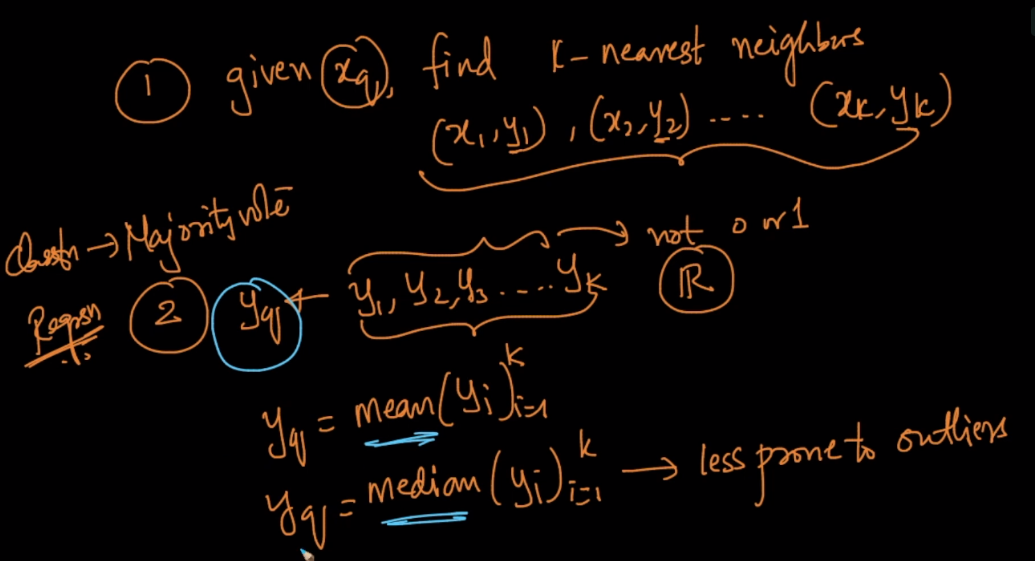 1 given xq, find K-nearest neighbors
(x1, y1), (x2, y2) ..... (xk, yk)
Classfn → Majority vote
not 0 or 1
Regrsn 2 yq ← y1, y2, y3 ..... yk ℝ
yq = mean(yi)ᵏi=1
yq = median(yi)ᵏi=1 → less prone to outliers